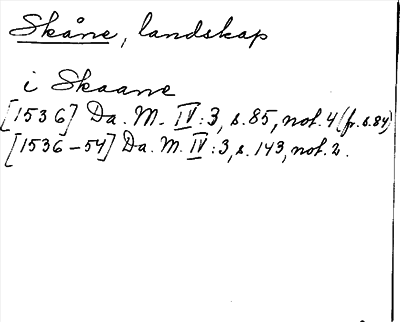 Skåne, landskap
i Skaane
[1536] Da. M. IV:3, s.85, not.4 (fr.s.84)
[1536-54] Da. M. IV:3, s.143, not.2.